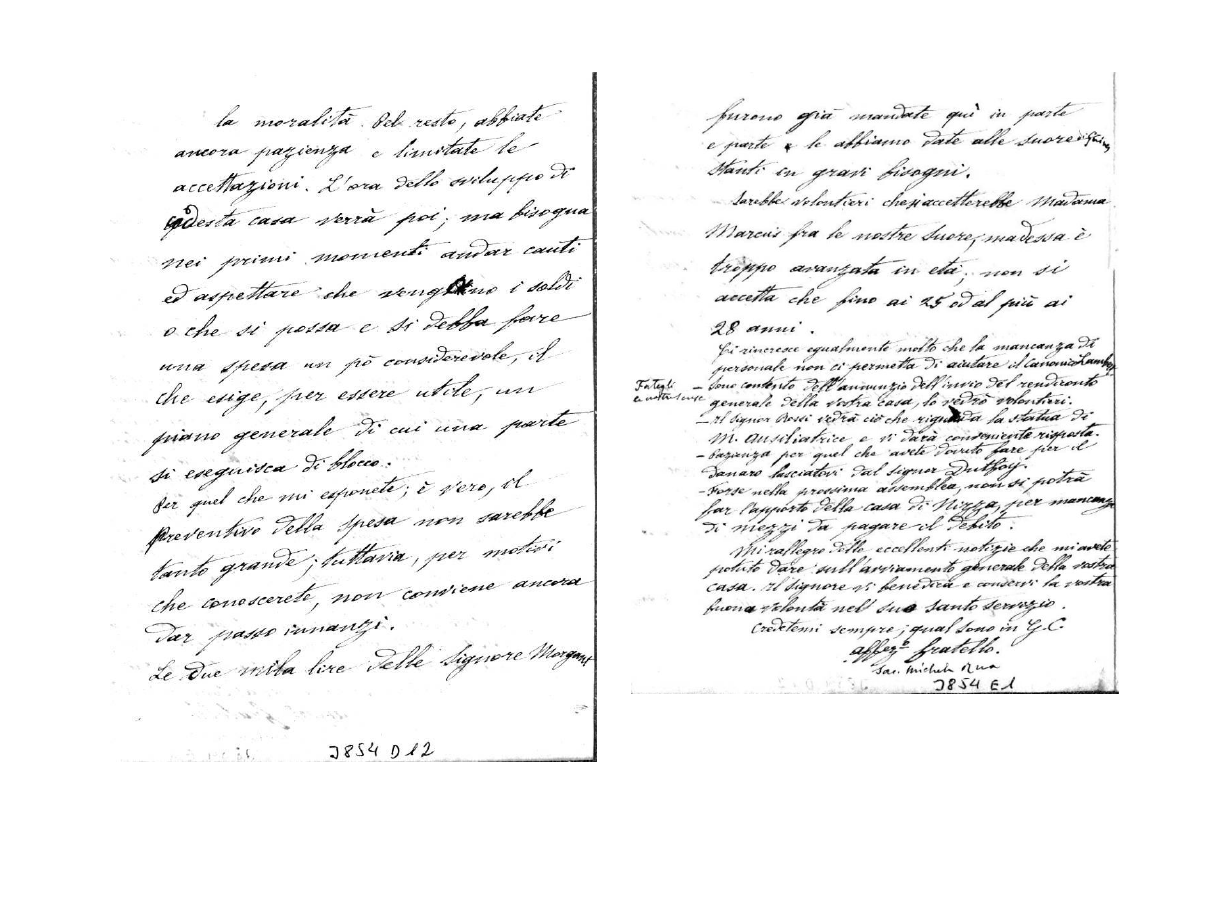 la moralità. Del resto, abbiate
ancora pazienza e limitate le
accettazioni. L'ora dello sviluppo di
codesta casa verrà poi; ma bisogna
nei primi momenti andar cauti
ed aspettare che vengano i soldi
o che si possa e si debba fare
una spesa un pò considerevole, il
che esige, per essere utile, un
piano generale di cui una parte
si eseguisca di blocco.
Per quel che mi esponete; è vero, il
preventivo della spesa non sarebbe
tanto grande; tuttavia, per motivi
che conoscerete, non conviene ancora
dar passo innanzi.
Le due mila lire delle Signore Morgant
J854 D12
furono già mandate quì in parte
e parte le abbiamo date alle Suore
stanti in gravi bisogni.
Sarebbe volontieri che si accetterebbe Madama
Marcus fra le nostre Suore, ma dessa è
troppo avanzata in età; non si
accetta che fino ai 25 od al più ai
28 anni.
Ci rincresce egualmente molto che la mancanza di
personale non ci permetta di aiutare il Canonico
Fategli le nostre scuse
- Sono contento dell'annunzio dell'invio del rendiconto
generale della vostra casa, lo vedrò volontieri.
- Il Signor Rossi vedrà ciò che riguarda la statua di
M. Ausiliatrice e vi darà conveniente risposta.
- Pazienza per quel che avete dovuto fare per il
danaro lasciatovi dal Signor
- Forse nella prossima assemblea, non si potrà
far l'apporto della casa di Nizza, per mancanza
di mezzi da pagare il debito.
Mi rallegro delle eccellenti notizie che mi avete
potuto dare sull'avviamento generale della vostra
casa. Il Signore vi benedica e conservi la vostra
buona volontà nel suo santo servizio.
Credetemi sempre, qual sono in G.C.
affez.º fratello.
Sac. Michele Rua
J854 E1